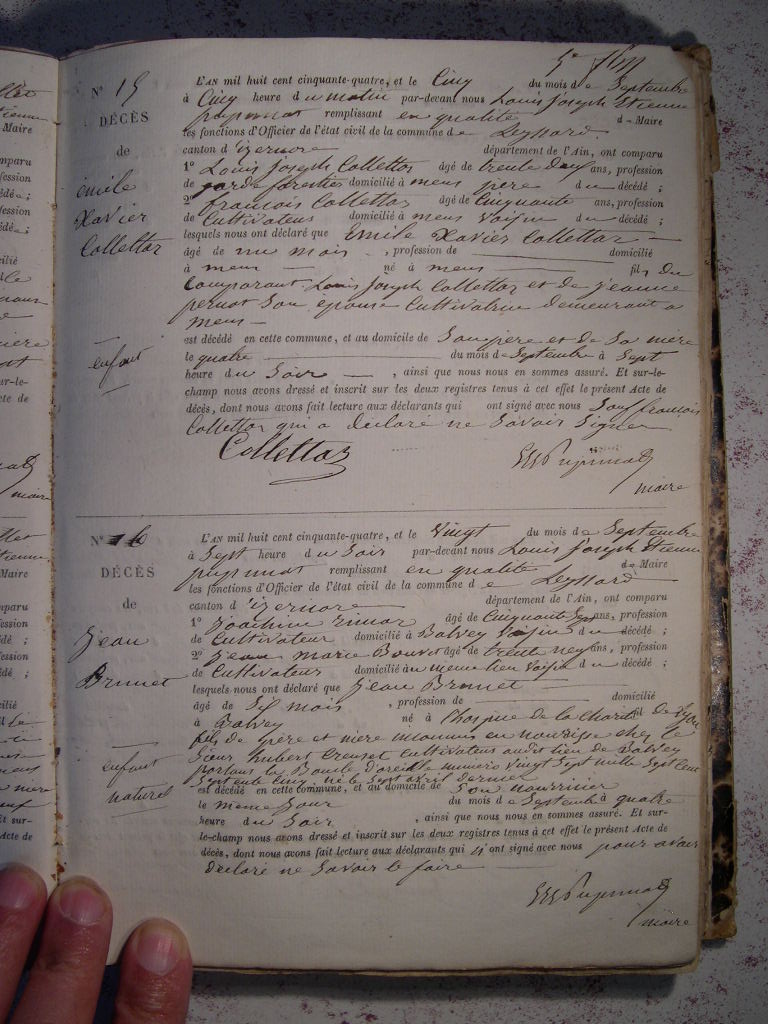 N° 15
DÉCÈS
de
émile
Xavier
Collettaz
enfant
L'AN mil huit cent cinquante-quatre, et le Cinq du mois de Septembre
à Cinq heure du matin par-devant nous Louis Joseph Etienne
remplissant en qualité de Maire
les fonctions d'Officier de l'état civil de la commune de Leyssard
canton d'izernore département de l'Ain, ont comparu
1° Louis Joseph Collettaz âgé de trente deux ans, profession
de garde forestier domicilié à mens père du décédé ;
2° françois Collettaz âgé de Cinquante ans, profession
de Cultivateur domicilié à mens Voisin du décédé ;
lesquels nous ont déclaré que Emile Xavier Collettaz
âgé de un mois , profession de domicilié
à mens né à mens fils du
Comparant Louis Joseph Collettaz et de jeanne
pernot Son épouse Cultivatrice demeurant a
mens
est décédé en cette commune, et au domicile de Son père et de Sa mère
le quatre du mois de Septembre à Sept
heure du Soir , ainsi que nous nous en sommes assuré. Et sur-le-
champ nous avons dressé et inscrit sur les deux registres tenus à cet effet le présent Acte de
décès, dont nous avons fait lecture aux déclarants qui ont signé avec nous Sauf françois
Collettaz qui a declaré ne Savoir Signer
Collettaz
maire
N° 16
DÉCÈS
de
Jean
Brunet
enfant
naturel
L'AN mil huit cent cinquante-quatre, et le Vingt du mois de Septembre
à Sept heure du Soir par-devant nous Louis Joseph Etienne
remplissant en qualité de Maire
les fonctions d'Officier de l'état civil de la commune de Leyssard
canton d'izernore département de l'Ain, ont comparu
1° Joachim âgé de Cinquante Sept ans, profession
de Cultivateur domicilié à Balvey Voisin du décédé ;
2° jean marie Bouvet âgé de trente neuf ans, profession
de Cultivateur domicilié au meme lieu Voisin du décédé ;
lesquels nous ont déclaré que Jean Brunet
âgé de Six mois , profession de domicilié
à Balvey né à l'hospice de la Charité fil de Lyon
fils de père et mère inconnus en nourrisse chez le
Sieur hubert Creuset cultivateur audit lieu de Balvey
portant la Boucle d'oreille numéro Vingt Sept mille Sept cent
Septente Cinq, né le Sept avril dernier
est décédé en cette commune, et au domicile de Son nourricier
le meme Jour du mois de Septembre à quatre
heure du Soir , ainsi que nous nous en sommes assuré. Et sur-
le-champ nous avons dressé et inscrit sur les deux registres tenus à cet effet le présent Acte de
décès, dont nous avons fait lecture aux déclarants qui n'ont signé avec nous pour avoir
declaré ne Savoir le faire
maire